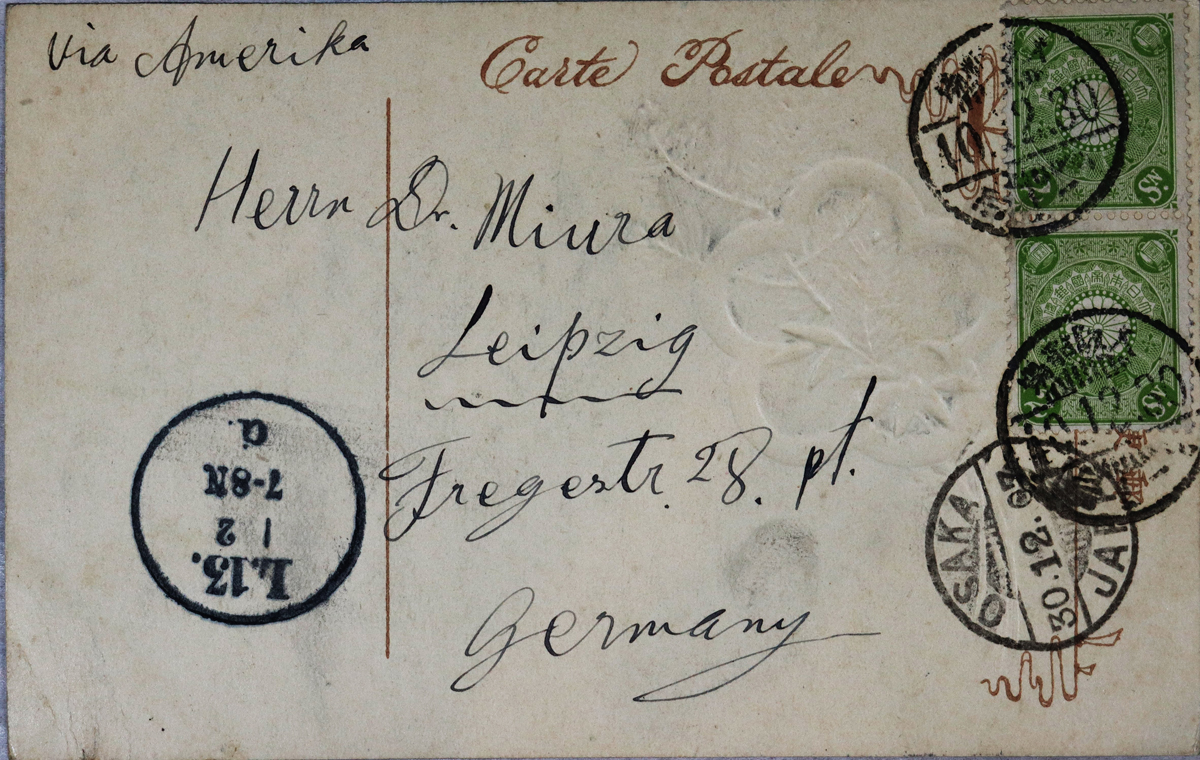 via Amerika
Carte Postale
Herrn Dr. Miura
Leipzig
Fregestr. 28. pt.
Germany
OSAKA
30.12.07
JAPAN
L.13.
1 2
7-8N
a.